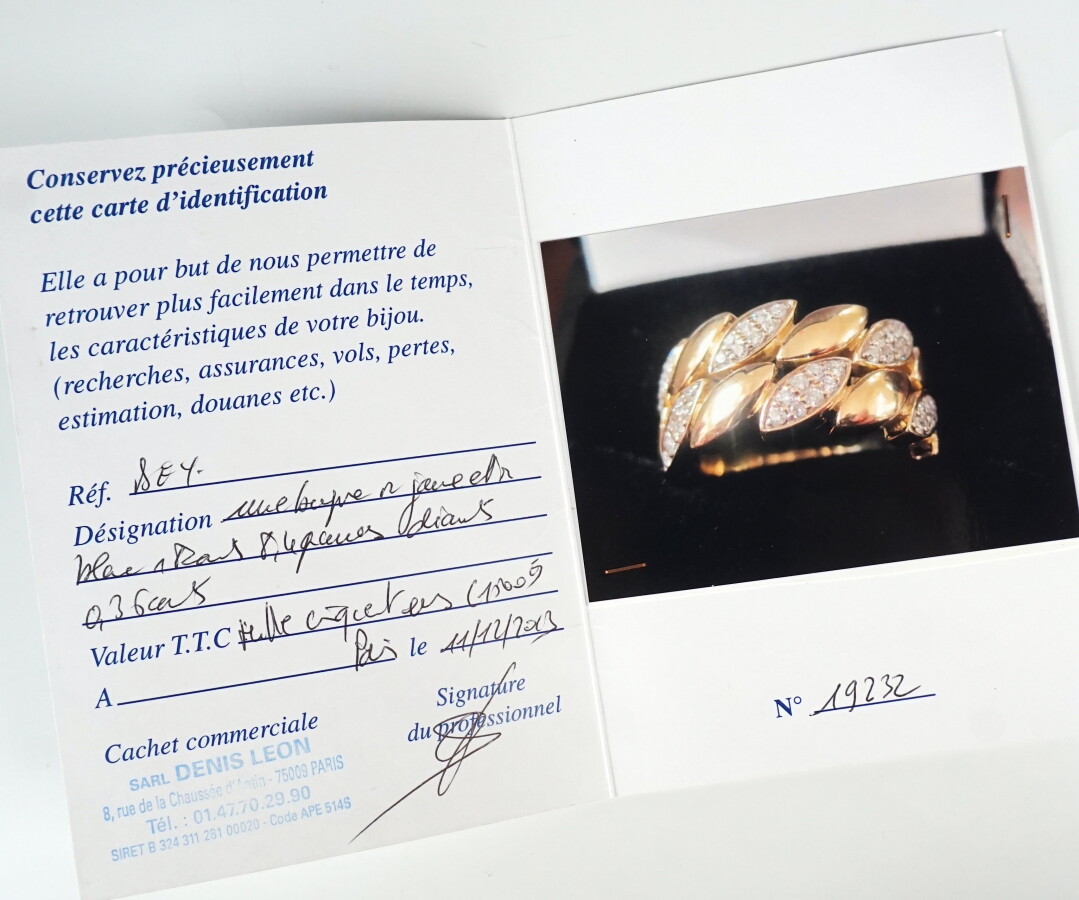 Conservez précieusement
cette carte d'identification
Elle a pour but de nous permettre de
retrouver plus facilement dans le temps,
les caractéristiques de votre bijou.
(recherches, assurances, vols, pertes,
estimation, douanes etc.)
Réf.
Désignation une
0,36
Valeur T.T.C Mille
A Paris le 11/12/2013
Signature
du professionnel
Cachet commerciale
SARL DENIS LEON
8, rue de la Chaussée d'Antin - 75009 PARIS
Tél. : 01.47.70.29.90
SIRET B 324 311 281 00020 - Code APE 514S
N° 19232